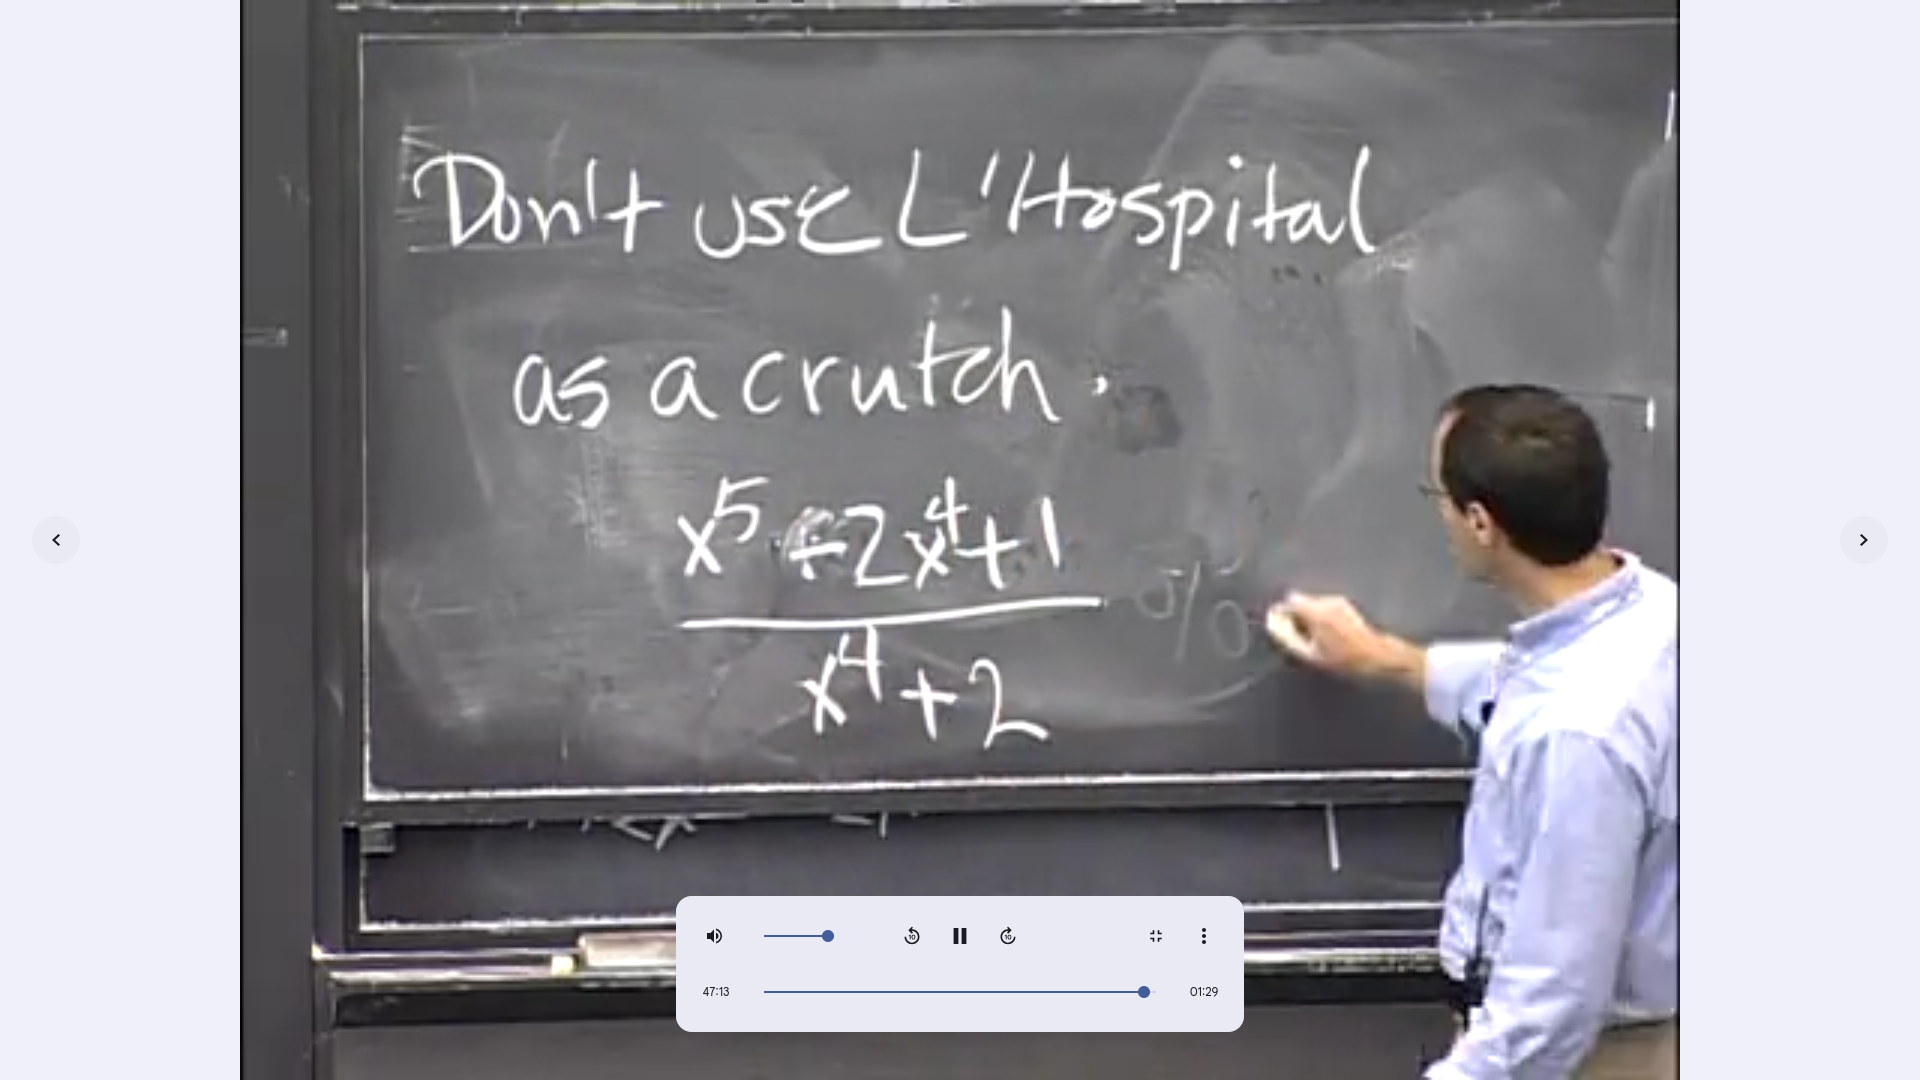 Don't use L'Hospital
as a crutch.
x⁵ - 2x⁴ + 1
x⁴ + 2
10
10
47:13
01:29